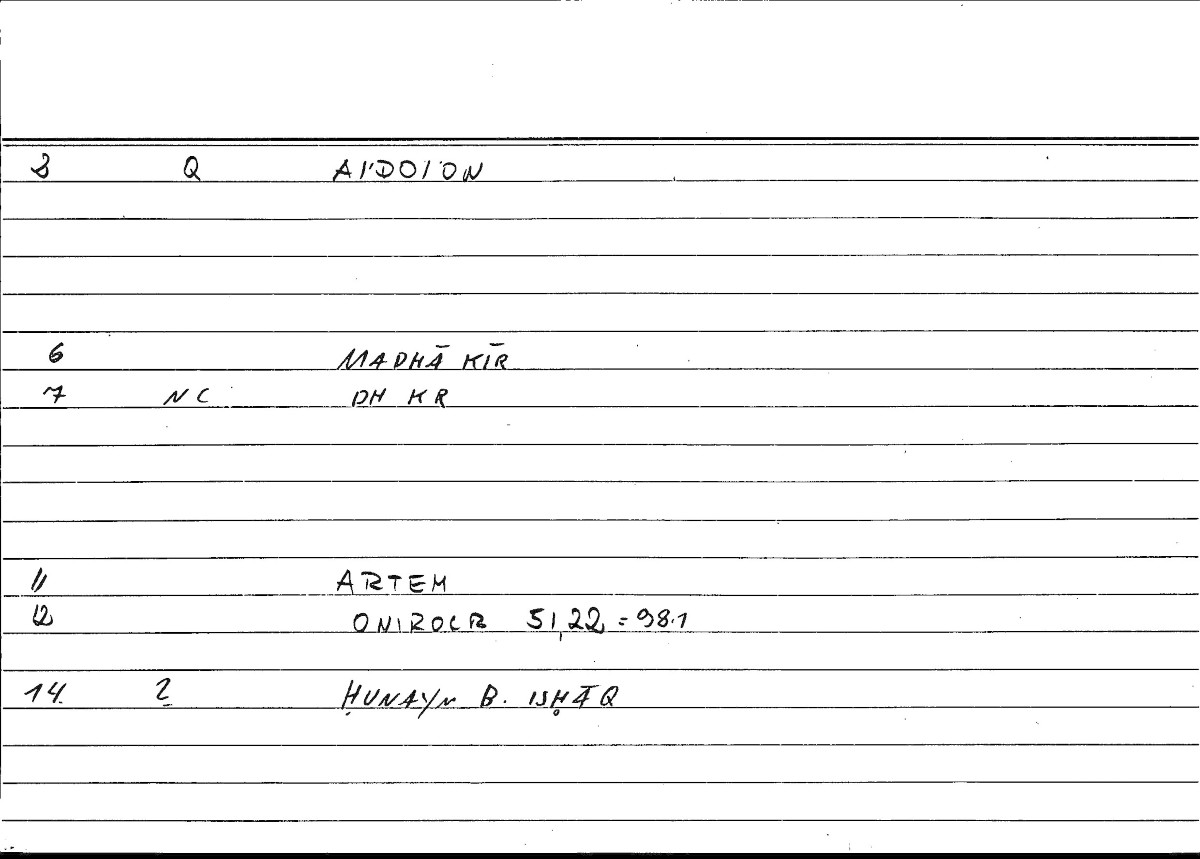 3 Q AI'DOI'ON
6 MADHĀKĪR
7 NC DHKR
11 ARTEM
12 ONIROCR 51,22 = 98.1
14. 2 ḤUNAYN B. ISḤĀQ